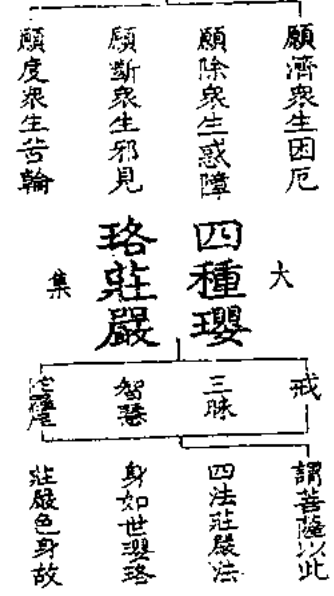 願濟衆生困厄
願除衆生惑障
願斷衆生邪見
願度衆生苦輪
大
四種瓔
珞莊嚴
集
戒
三昧
智慧
陀羅尼
謂菩薩以此
四法莊嚴法
身如世瓔珞
莊嚴色身故